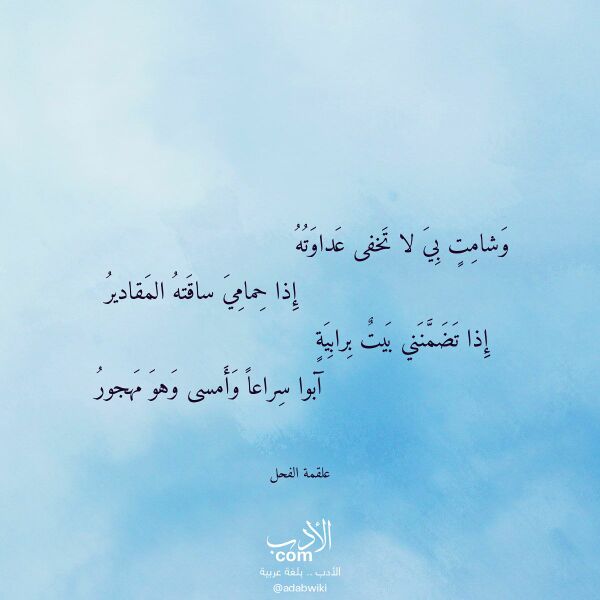 وَشامِتٍ بِيَ لا تَخفى عَداوَتُهُ
إِذا حِمامِيَ ساقَتهُ المَقاديرُ
إِذا تَضَمَّنَني بَيتٌ بِرابِيَةٍ
آبوا سِراعاً وَأَمسى وَهوَ مَهجورُ
علقمة الفحل
الأدب
com
الأدب .. بلغة عربية
@adabwiki